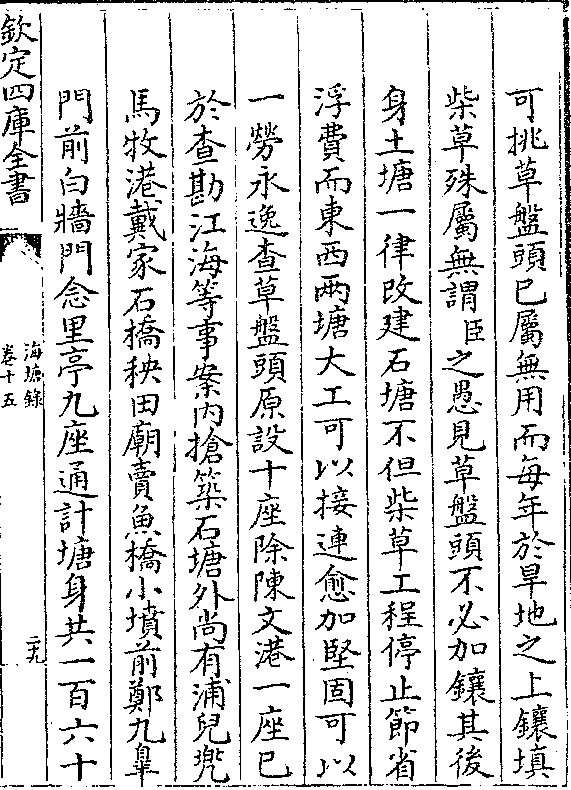 可挑草盤頭已屬無用而每年於旱地之上鑲填
柴草殊屬無謂臣之愚見草盤頭不必加鑲其後
身土塘一律改建石塘不但柴草工程停止節省
浮費而東西兩塘大工可以接連愈加堅固可以
一勞永逸查草盤頭原設十座除陳文港一座已
於查勘江海等事案内搶築石塘外尚有浦兒兜
馬牧港戴家石橋秧田廟賣魚橋小墳前鄭九臯
門前白牆門念里亭九座通計塘身共一百六十
欽定四庫全書
海塘錄
卷十五
二九